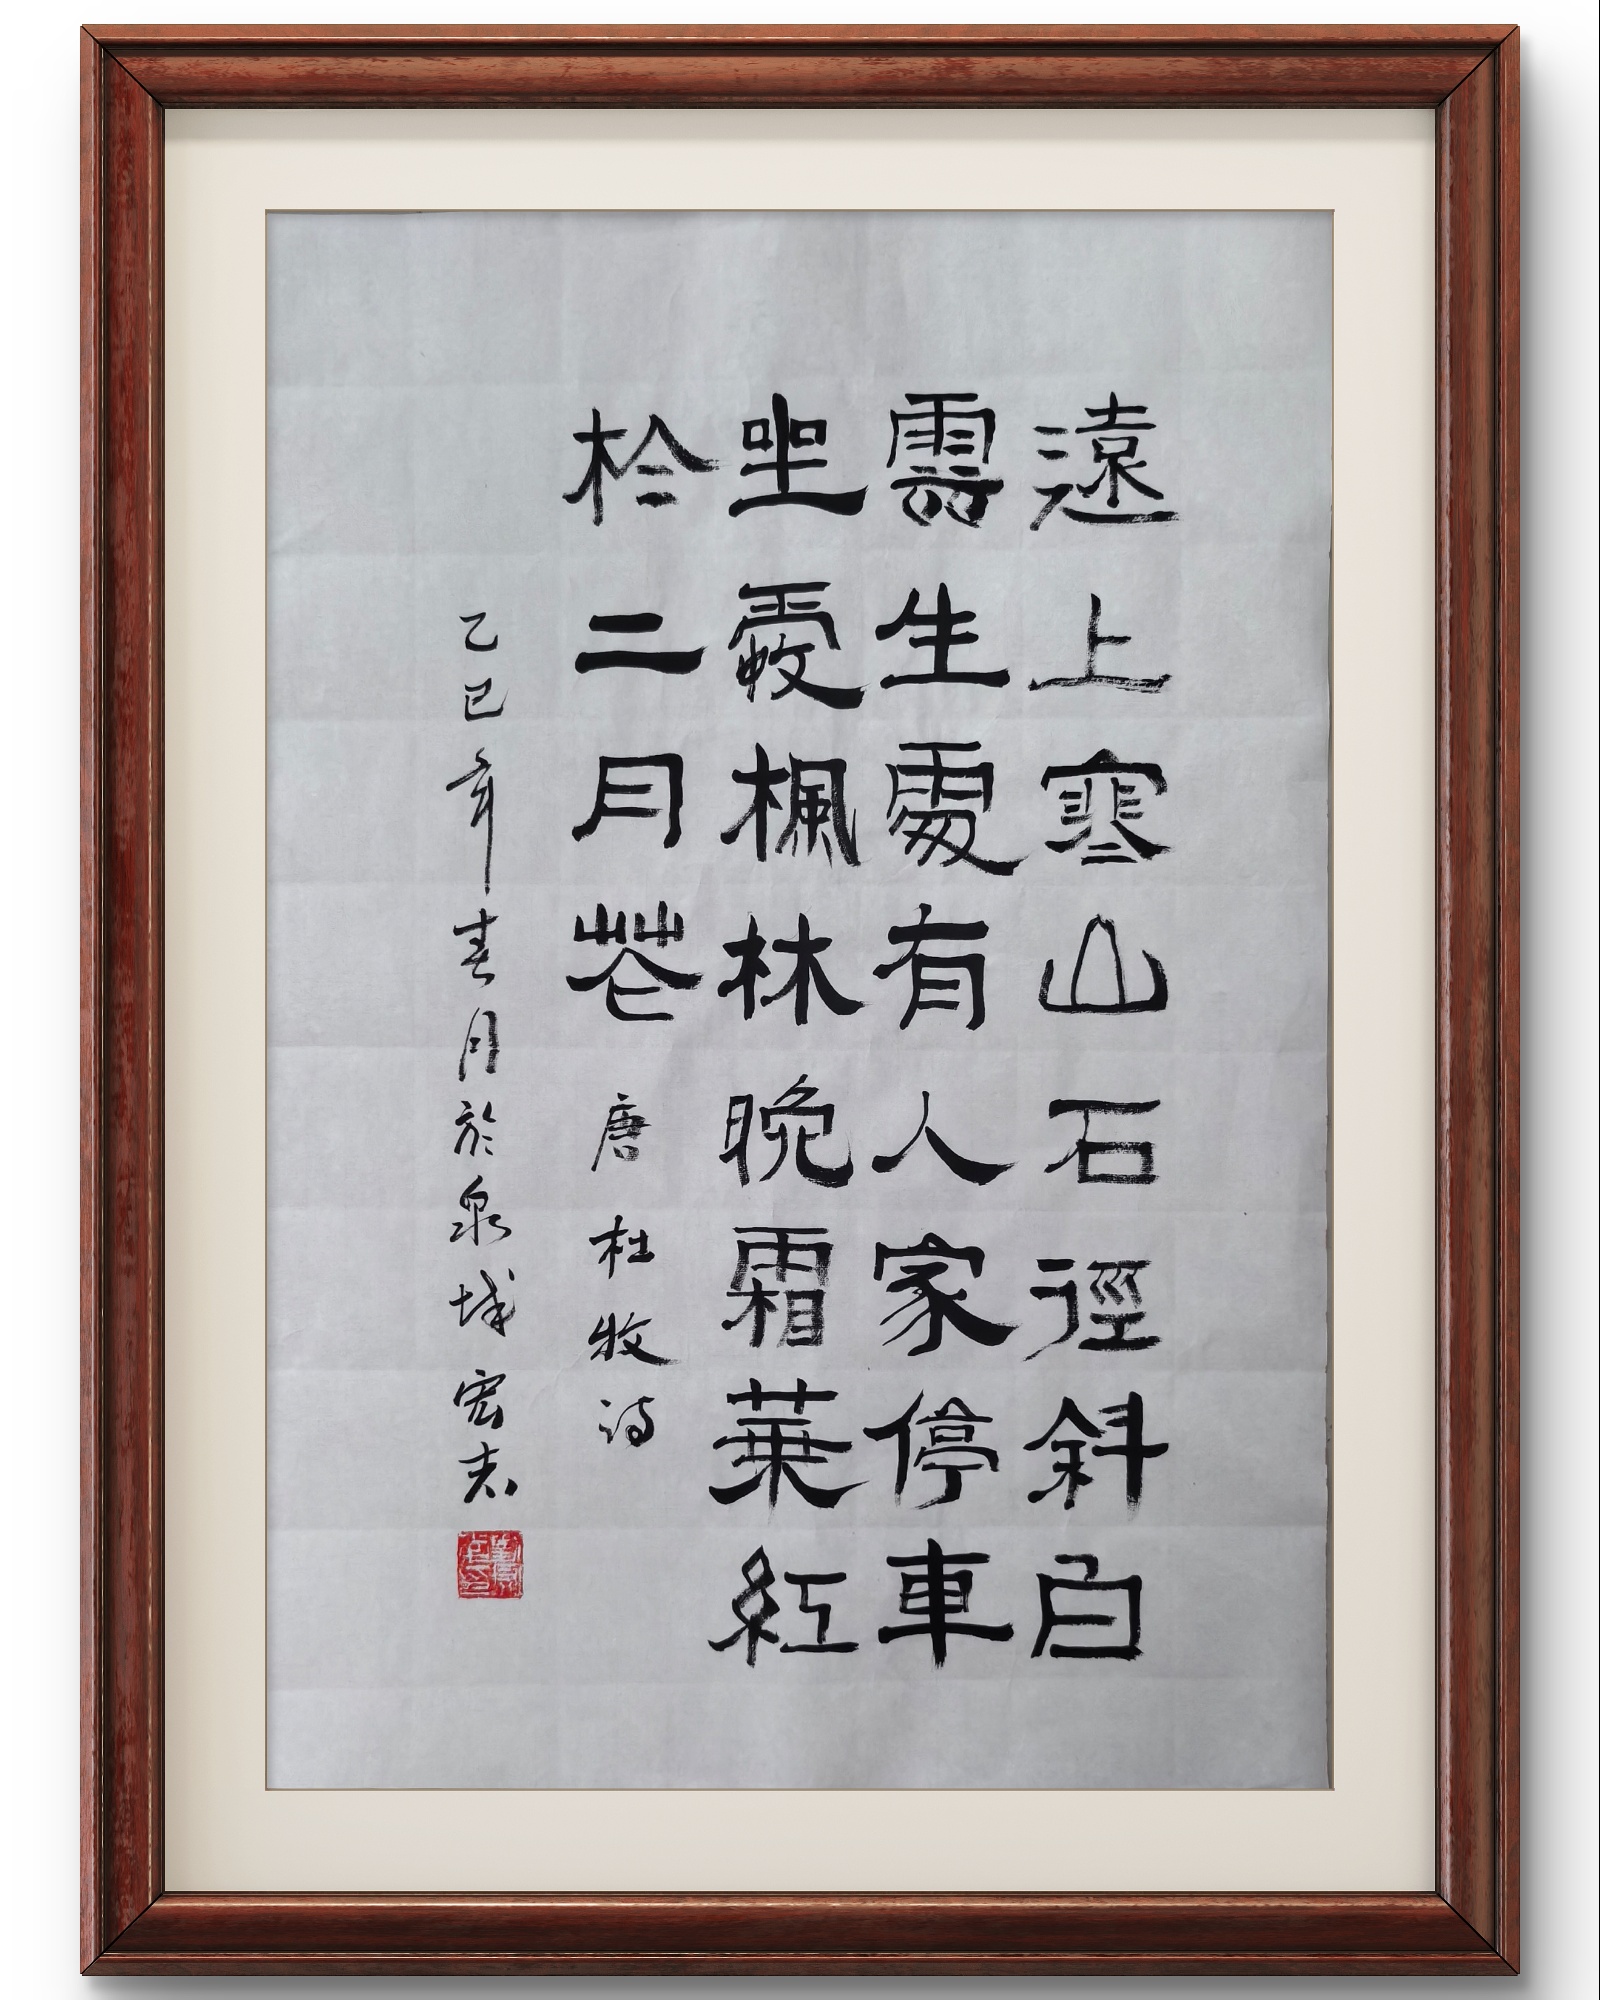 遠上寒山石徑斜白
雲生處有人家停車
坐愛楓林晚霜葉紅
於二月花 唐杜牧詩
乙巳年春月於泉城宏志